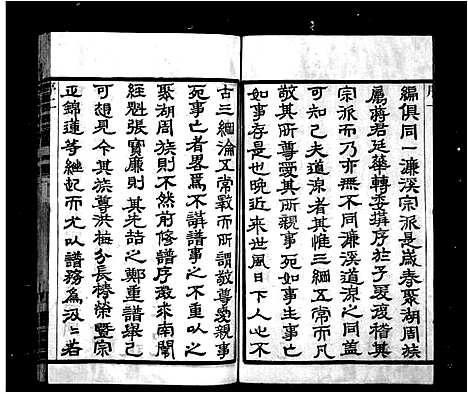 序一
編俱同一濂溪宗派是歲春聚湖周族
屬蔣君廷華轉委撰序於予爰稽其
宗派而乃亦無不同濂溪道源之同蓋
可知已夫道源者其惟三綱五常而凡
敬其所尊愛其所親事死如事生事亡
如事存是也晚近來世風日下人心不
古三綱淪五常斁而所謂敬尊愛親事
死事亡者畧焉不講譜事之不重以之
聚湖周族則不然前修譜序敦來南闈
經魁張寶廉則其先喆之鄭重譜舉已
可想見今其族尊洪梅分長榜榮暨宗
正錦蓮等繼起而尤以譜務為汲汲若
序二